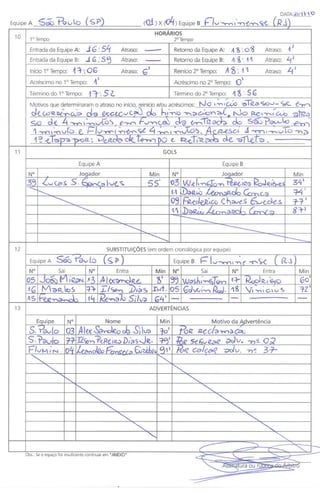 Equipe A São Paulo (SP) (01 x 04) Equipe B Fluminense (RJ)
10 HORÁRIOS
1º Tempo 2º Tempo
Entrada da Equipe A: 16:54 Atraso: — Retorno da Equipe A: 18:08 Atraso: 1'
Entrada da Equipe B: 16:59 Atraso: — Retorno da Equipe B: 18:11 Atraso: 4'
Início 1º Tempo: 17:06 Atraso: 6' Reinício 2º Tempo: 18:11 Atraso: 4'
Acréscimo no 1º Tempo: 1' Acréscimo no 2º Tempo:
Término do 1º Tempo: 17:52 Término do 2º Tempo: 18:56
Motivos que determinaram o atraso no início, reinício e/ou acréscimos: No início atrasou-se em
decorrência da execução do hino nacional, No reinício atra
so de 4 minutos, em função da entrada do São Paulo em
1 minuto e Fluminense 4 minutos. Acresci 1 minuto na
1ª etapa por: Perda de tempo e Retirada de atleta.
11 GOLS
Equipe A Equipe B
Nº Jogador Min Nº Jogador Min
39 Lucas S Gonçalves 55' 03 Wellington Pereira Rodrigues 34'
11 Dario Leonardo Conca 74'
09 Frederico Chaves Guedes 77'
11 Dario Leonardo Conca 87'
12 SUBSTITUIÇÕES (em ordem cronológica por equipe)
Equipe A São Paulo (SP) Equipe B Fluminense (RJ)
Nº Sai Nº Entra Min Nº Sai Nº Entra Min
13 Alexandre 8' Washington 17 Rodriguinho 60'
16 Marlos 77 Ilsan Dias Int. 05 18 Vinicius 72'
15 Fernando 14 Renato Silva 64'
13 ADVERTÊNCIAS
Equipe Nº Nome Min Motivo da Advertência
S. Paulo 03 Alex Sandro da Silva 70' Por reclamação.
S. Paulo 77 Pereira Dias Jr. 79' Por segurar adv. nº 02
Flumin 04 Leandro Fonseca Euzébio 91' Por calçar adv. nº 37
Obs.: Se o espaço for insuficiente continuar em "ANEXO"